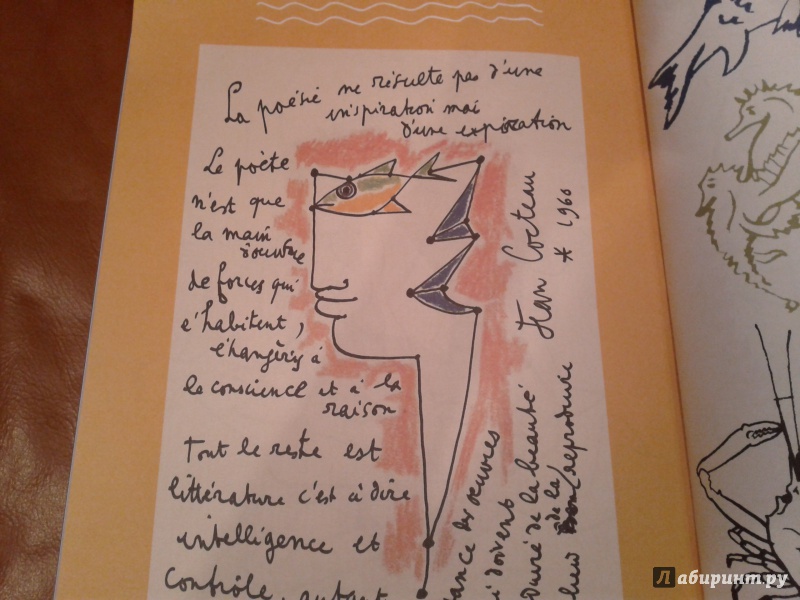 La poésie ne résulte pas d'une
inspiration mai
d'une expiration
Le poète
n'est que
la main
d'œuvre
de forces qui
l'habitent,
étrangères à
la conscience et à la
raison
Tout le reste est
littérature c'est à dire
intelligence et
contrôle, autant
Jean Cocteau
* 1960
des œuvres
doivent
de la beauté
de la
reproduire
Лабиринт.ру